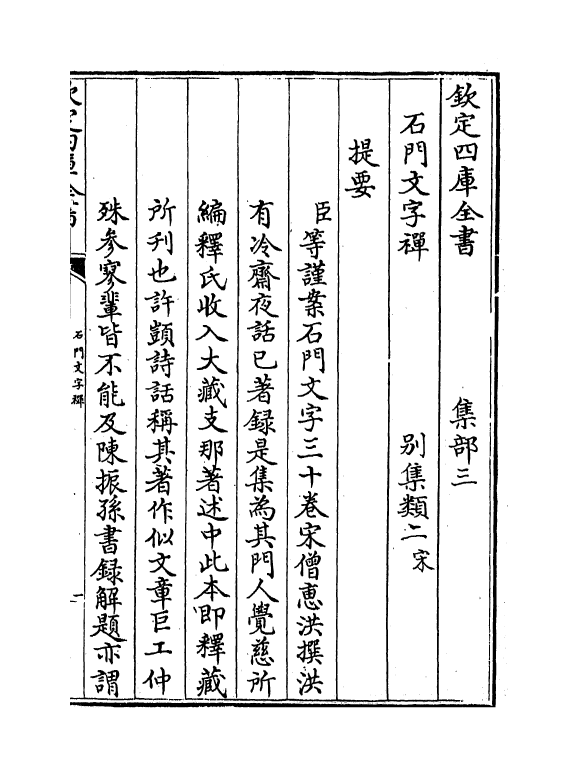 欽定四庫全書　集部三
石門文字禪　別集類二宋
提要
臣等謹案石門文字三十卷宋僧惠洪撰洪
有冷齋夜話已著録是集為其門人覺慈所
編釋氏收入大藏支那著述中此本即釋藏
所刋也許顗詩話稱其著作似文章巨工仲
殊參寥輩皆不能及陳振孫書録解題亦謂
欽定四庫全書
石門文字禪
一